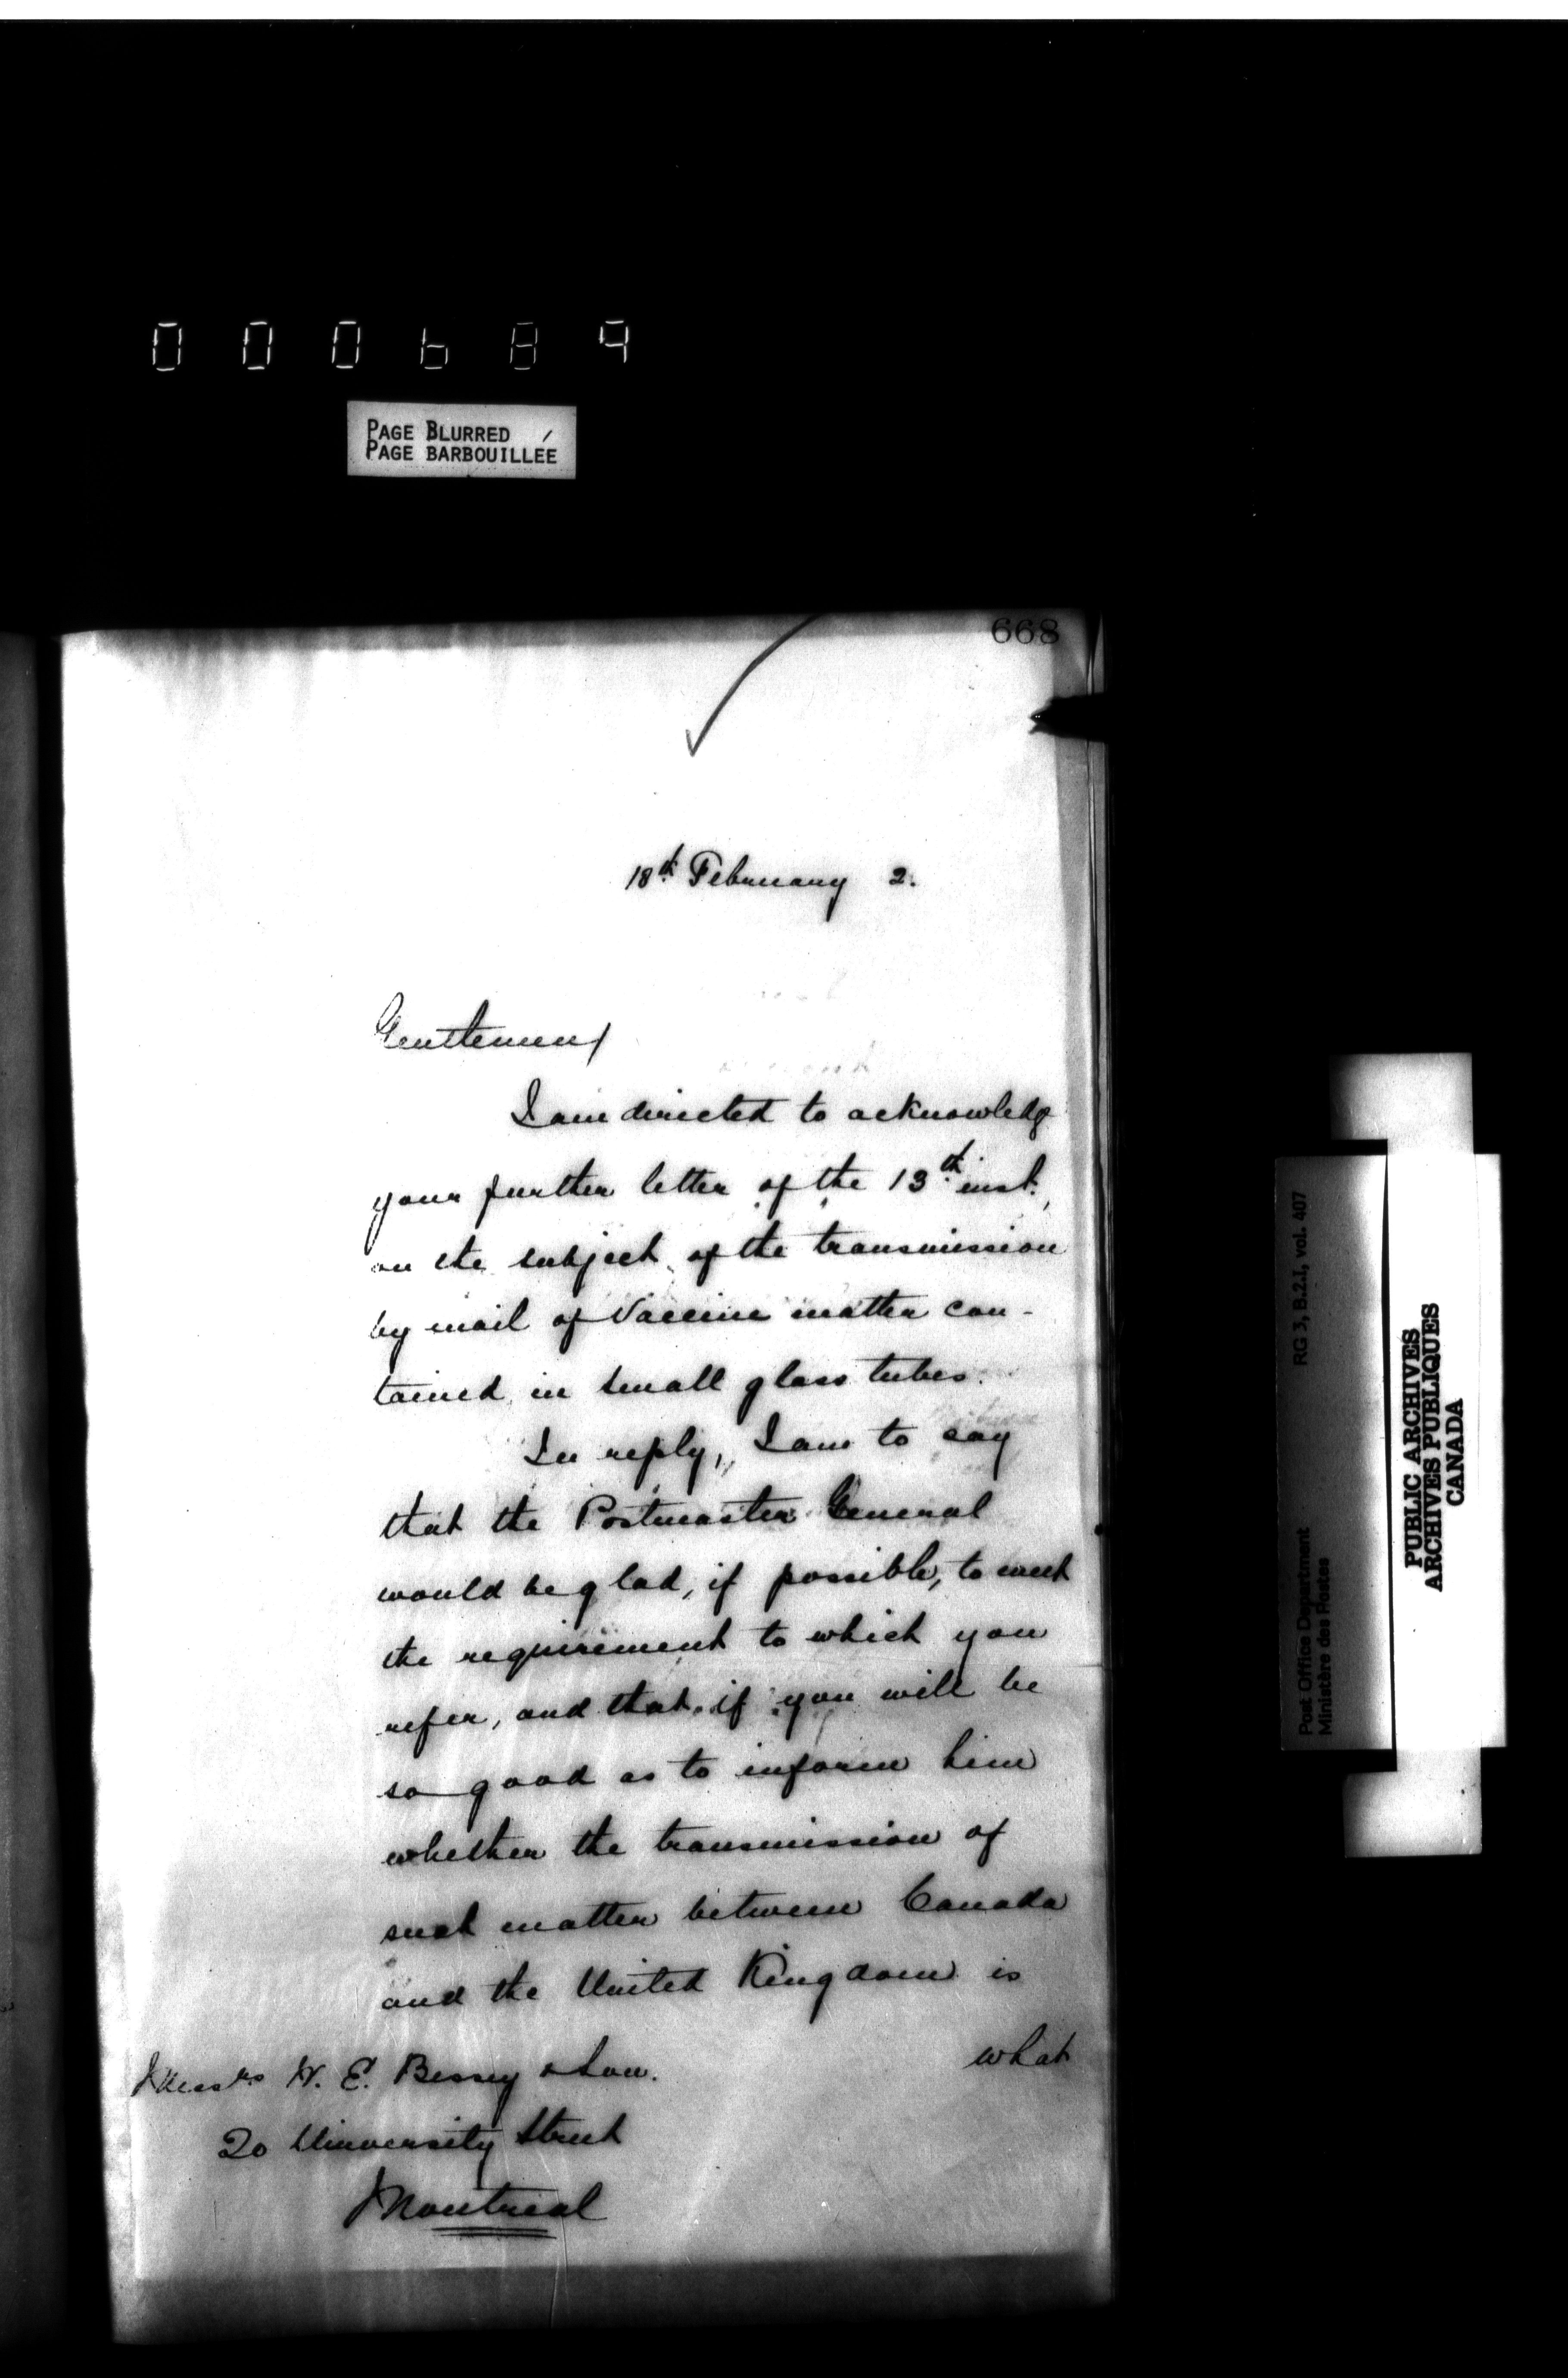 000689
PAGE BLURRED
PAGE BARBOUILLÉE
668
18th February 2.
Gentlemen,
I am directed to acknowledge
your further letter of the 13th inst.,
on the subject of the transmission
by mail of Vaccine matter con-
tained in small glass tubes.
In reply, I am to say
that the Postmaster General
would be glad, if possible, to meet
the requirement to which you
refer, and that, if you will be
so good as to inform him
whether the transmission of
such matter between Canada
and the United Kingdom is
what
Messrs W. E. Bessey & Son.
20 University Street
Montreal
Post Office Department
Ministère des Postes
RG 3, B.2.I, vol. 407
PUBLIC ARCHIVES
ARCHIVES PUBLIQUES
CANADA